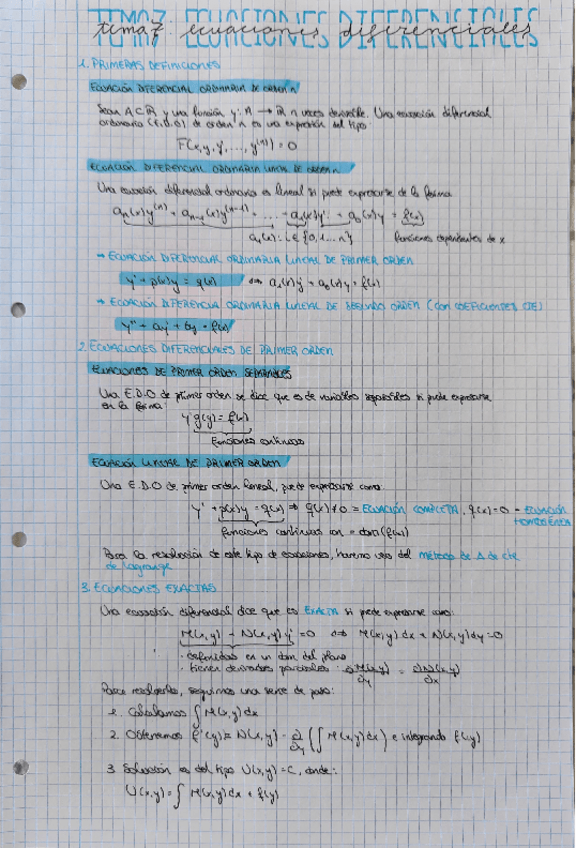 TEMA 7 ECUACIONES DIFERENCIALES
tema 7 ecuaciones diferenciales
1. PRIMERAS DEFINICIONES
ECUACIÓN DIFERENCIAL ORDINARIA DE ORDEN n
Sean A⊂R y una función y: A → R n veces derivable. Una ecuación diferencial
ordinaria (E.D.O) de orden n es una expresión del tipo:
F(x, y, y', ..., y^(n)) = 0
ECUACIÓN DIFERENCIAL ORDINARIA LINEAL DE ORDEN n
Una ecuación diferencial ordinaria es lineal si puede expresarse de la forma
a_n(x)y^(n) + a_{n-1}(x)y^(n-1) + .... + a_1(x)y' + a_0(x)y = f(x)
a_i(x): i ∈ {0,1...n} funciones dependientes de x
→ ECUACIÓN DIFERENCIAL ORDINARIA LINEAL DE PRIMER ORDEN
y' + p(x)y = q(x) ⇔ a_1(x)y' + a_0(x)y = f(x)
→ ECUACIÓN DIFERENCIA ORDINARIA LINEAL DE SEGUNDO ORDEN (con COEFICIENTES CTE)
y'' + ay' + by = f(x)
2. ECUACIONES DIFERENCIALES DE PRIMER ORDEN
ECUACIONES DE PRIMER ORDEN SEPARABLES
Una E.D.O de primer orden se dice que es de variables separables si puede expresarse
en la forma:
y'g(y) = f(x)
Funciones continuas
ECUACIÓN LINEAL DE PRIMER ORDEN
Una E.D.O de primer orden lineal, puede expresarse como:
y' + p(x)y = q(x) ⇒ q(x) ≠ 0 = ECUACIÓN COMPLETA, q(x) = 0 - ECUACIÓN
HOMOGÉNEA
funciones continuas con = dom(f(x))
Para la resolución de este tipo de ecuaciones, haremos uso del método de Δ de cte
de Lagrange
3. ECUACIONES EXACTAS
Una ecuación diferencial dice que es EXACTA si puede expresarse como:
M(x,y) + N(x,y)y' = 0 ⇔ M(x,y)dx + N(x,y)dy = 0
· definidas en un dom del plano
· tienen derivadas parciales: ∂M(x,y)/∂y = ∂N(x,y)/∂x
Para resolverla, seguimos una serie de pasos:
1. Calculamos ∫M(x,y)dx
2. Obtenemos f'(y) = N(x,y) - ∂/∂y (∫M(x,y)dx) e integrando f(y)
3. Solución es del tipo U(x,y) = C, donde:
U(x,y) = ∫M(x,y)dx + f(y)